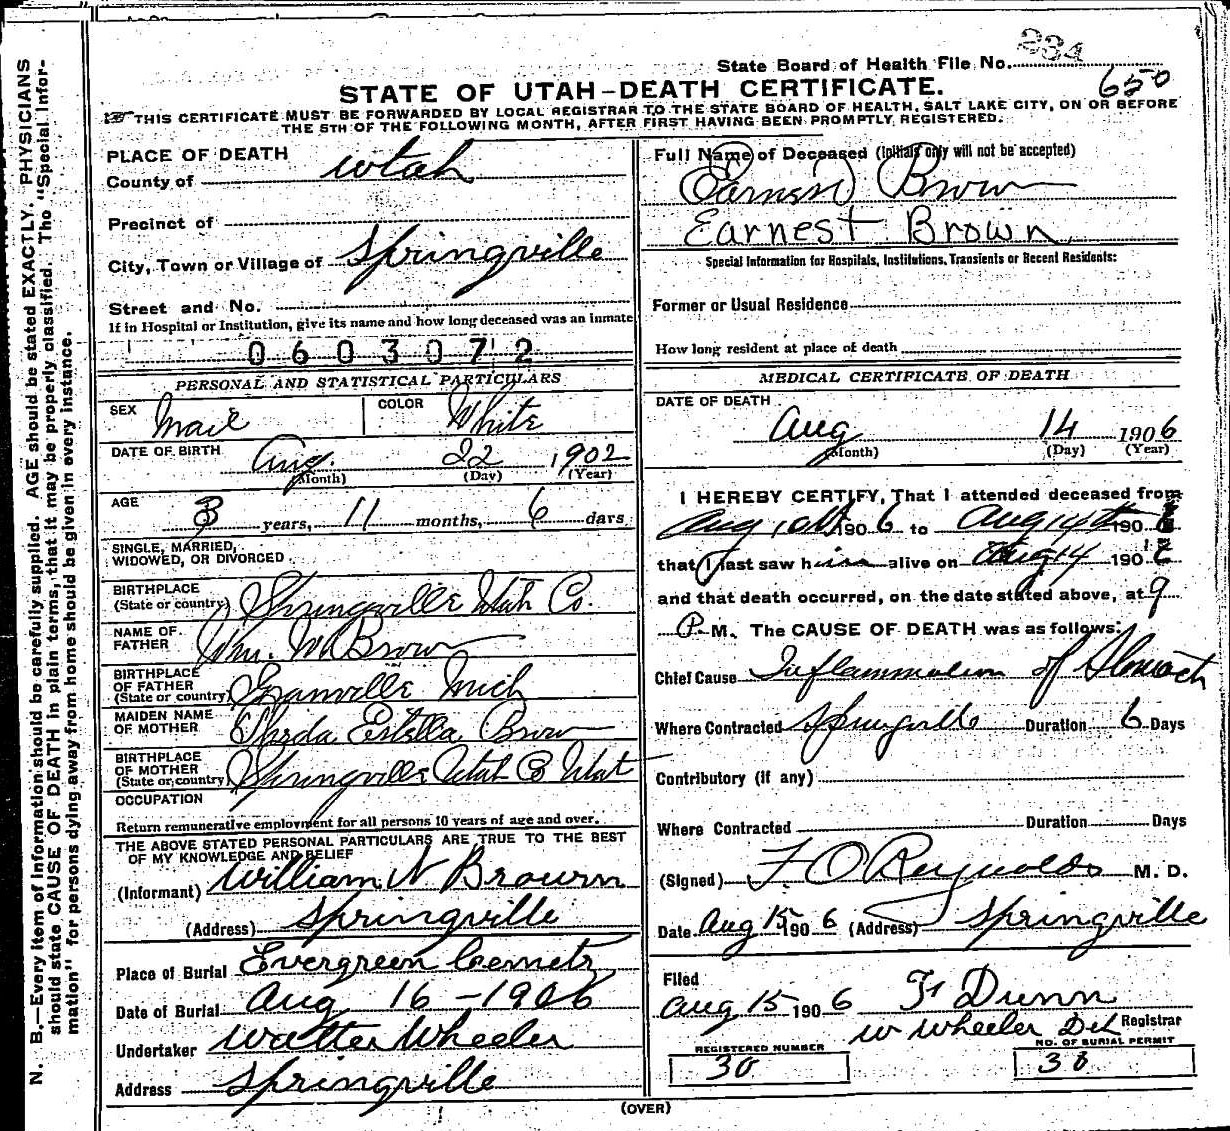 State Board of Health File No. 234
650
STATE OF UTAH-DEATH CERTIFICATE.
THIS CERTIFICATE MUST BE FORWARDED BY LOCAL REGISTRAR TO THE STATE BOARD OF HEALTH, SALT LAKE CITY, ON OR BEFORE
THE 5TH OF THE FOLLOWING MONTH, AFTER FIRST HAVING BEEN PROMPTLY REGISTERED.
N. B.—Every item of Information should be carefully supplied. AGE should be stated EXACTLY. PHYSICIANS
should state CAUSE OF DEATH in plain terms, that it may be properly classified. The "Special Infor-
mation" for persons dying away from home should be given in every instance.
PLACE OF DEATH
County of Utah
Precinct of
City, Town or Village of Springville
Street and No.
If in Hospital or Institution, give its name and how long deceased was an inmate
0603072
PERSONAL AND STATISTICAL PARTICULARS
SEX Male COLOR White
DATE OF BIRTH Aug. 22 1902
(Month) (Day) (Year)
AGE 3 years, 11 months, 6 days
SINGLE, MARRIED,
WIDOWED, OR DIVORCED
BIRTHPLACE
(State or country) Springville Utah Co.
NAME OF
FATHER Wm. W Brown
BIRTHPLACE
OF FATHER
(State or country) Granville Mich
MAIDEN NAME
OF MOTHER Estella Brown
BIRTHPLACE
OF MOTHER
(State or country) Springville Utah Co Utah
OCCUPATION
Return remunerative employment for all persons 10 years of age and over.
THE ABOVE STATED PERSONAL PARTICULARS ARE TRUE TO THE BEST
OF MY KNOWLEDGE AND BELIEF
(Informant) William W Brown
(Address) Springville
Place of Burial Evergreen Cemetry
Date of Burial Aug 16-1906
Undertaker Walter Wheeler
Address Springville
Full Name of Deceased (Initials only will not be accepted)
Earnest Brown
Earnest Brown
Special Information for Hospitals, Institutions, Transients or Recent Residents:
Former or Usual Residence
How long resident at place of death
MEDICAL CERTIFICATE OF DEATH
DATE OF DEATH
Aug 14 1906
(Month) (Day) (Year)
I HEREBY CERTIFY, That I attended deceased from
Aug 10th 1906 to Aug 14th 1906
that I last saw him alive on Aug 14 1906
and that death occurred, on the date stated above, at 9
P. M. The CAUSE OF DEATH was as follows:
Chief Cause Inflammation of Stomach
Where Contracted Springville Duration 6 Days
Contributory (if any)
Where Contracted Duration Days
(Signed) F O Reynolds M. D.
Date Aug 15 1906 (Address) Springville
Filed
Aug 15 1906 F Dunn
W Wheeler Del Registrar
REGISTERED NUMBER 30
NO. OF BURIAL PERMIT 38
(OVER)